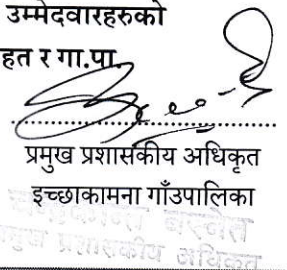 उम्मेदवारहरुको
हत र गा.पा.
प्रमुख प्रशासकीय अधिकृत
इच्छाकामना गाँउपालिका
प्रमुख प्रशासकीय अधिकृत